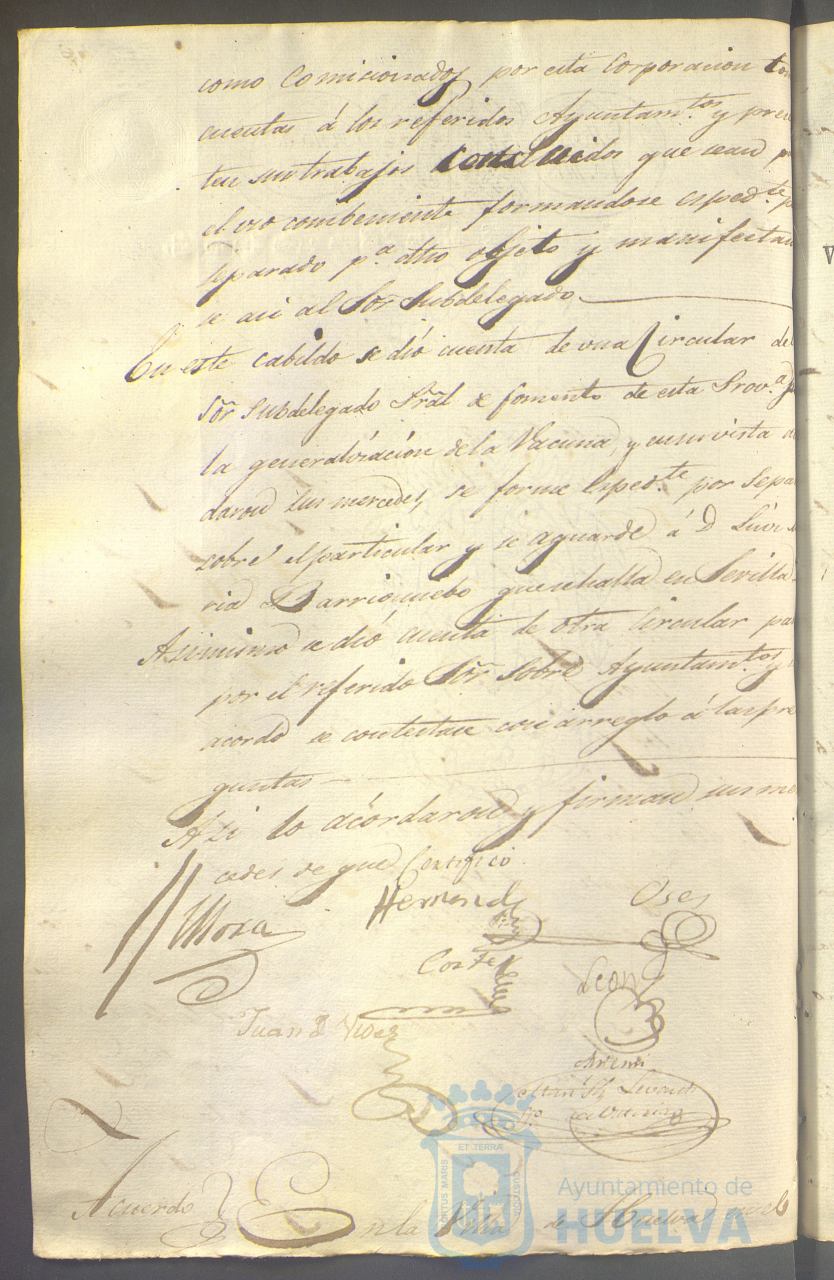 como Comicionados por esta Corporacion
cuentas á los referidos Ayuntam.tos y
ten sus trabajos concluidos que sean
el uso combeniente formandose esped.te
separado p.a dho objeto y manifestan
se asi al Sor Subdelegado
En este cabildo se dió cuenta de una Circular del
Sõr Subdelegado Prãl de fomento de esta Prov.a
la generalización de la Vacuna, y en su vista
daron sus mercedes, se forme Esped.te por Sepa
sobre el particular y se aguarde á D
Barrionuebo que se halla en Sevilla
Asimismo se dió cuenta de otra Circular
por el referido Sõr Sobre Ayuntam.tos y
acordó se contestase con arreglo á las pre
guntas
Asi lo acordaron y firman sus mer
cedes de que Certifico
Mora
Hernand
Oses
Cortes
Leon
Juan
Acuerdo
En la Villa de Huelva en el
ET TERRA
Ayuntamiento de
HUELVA